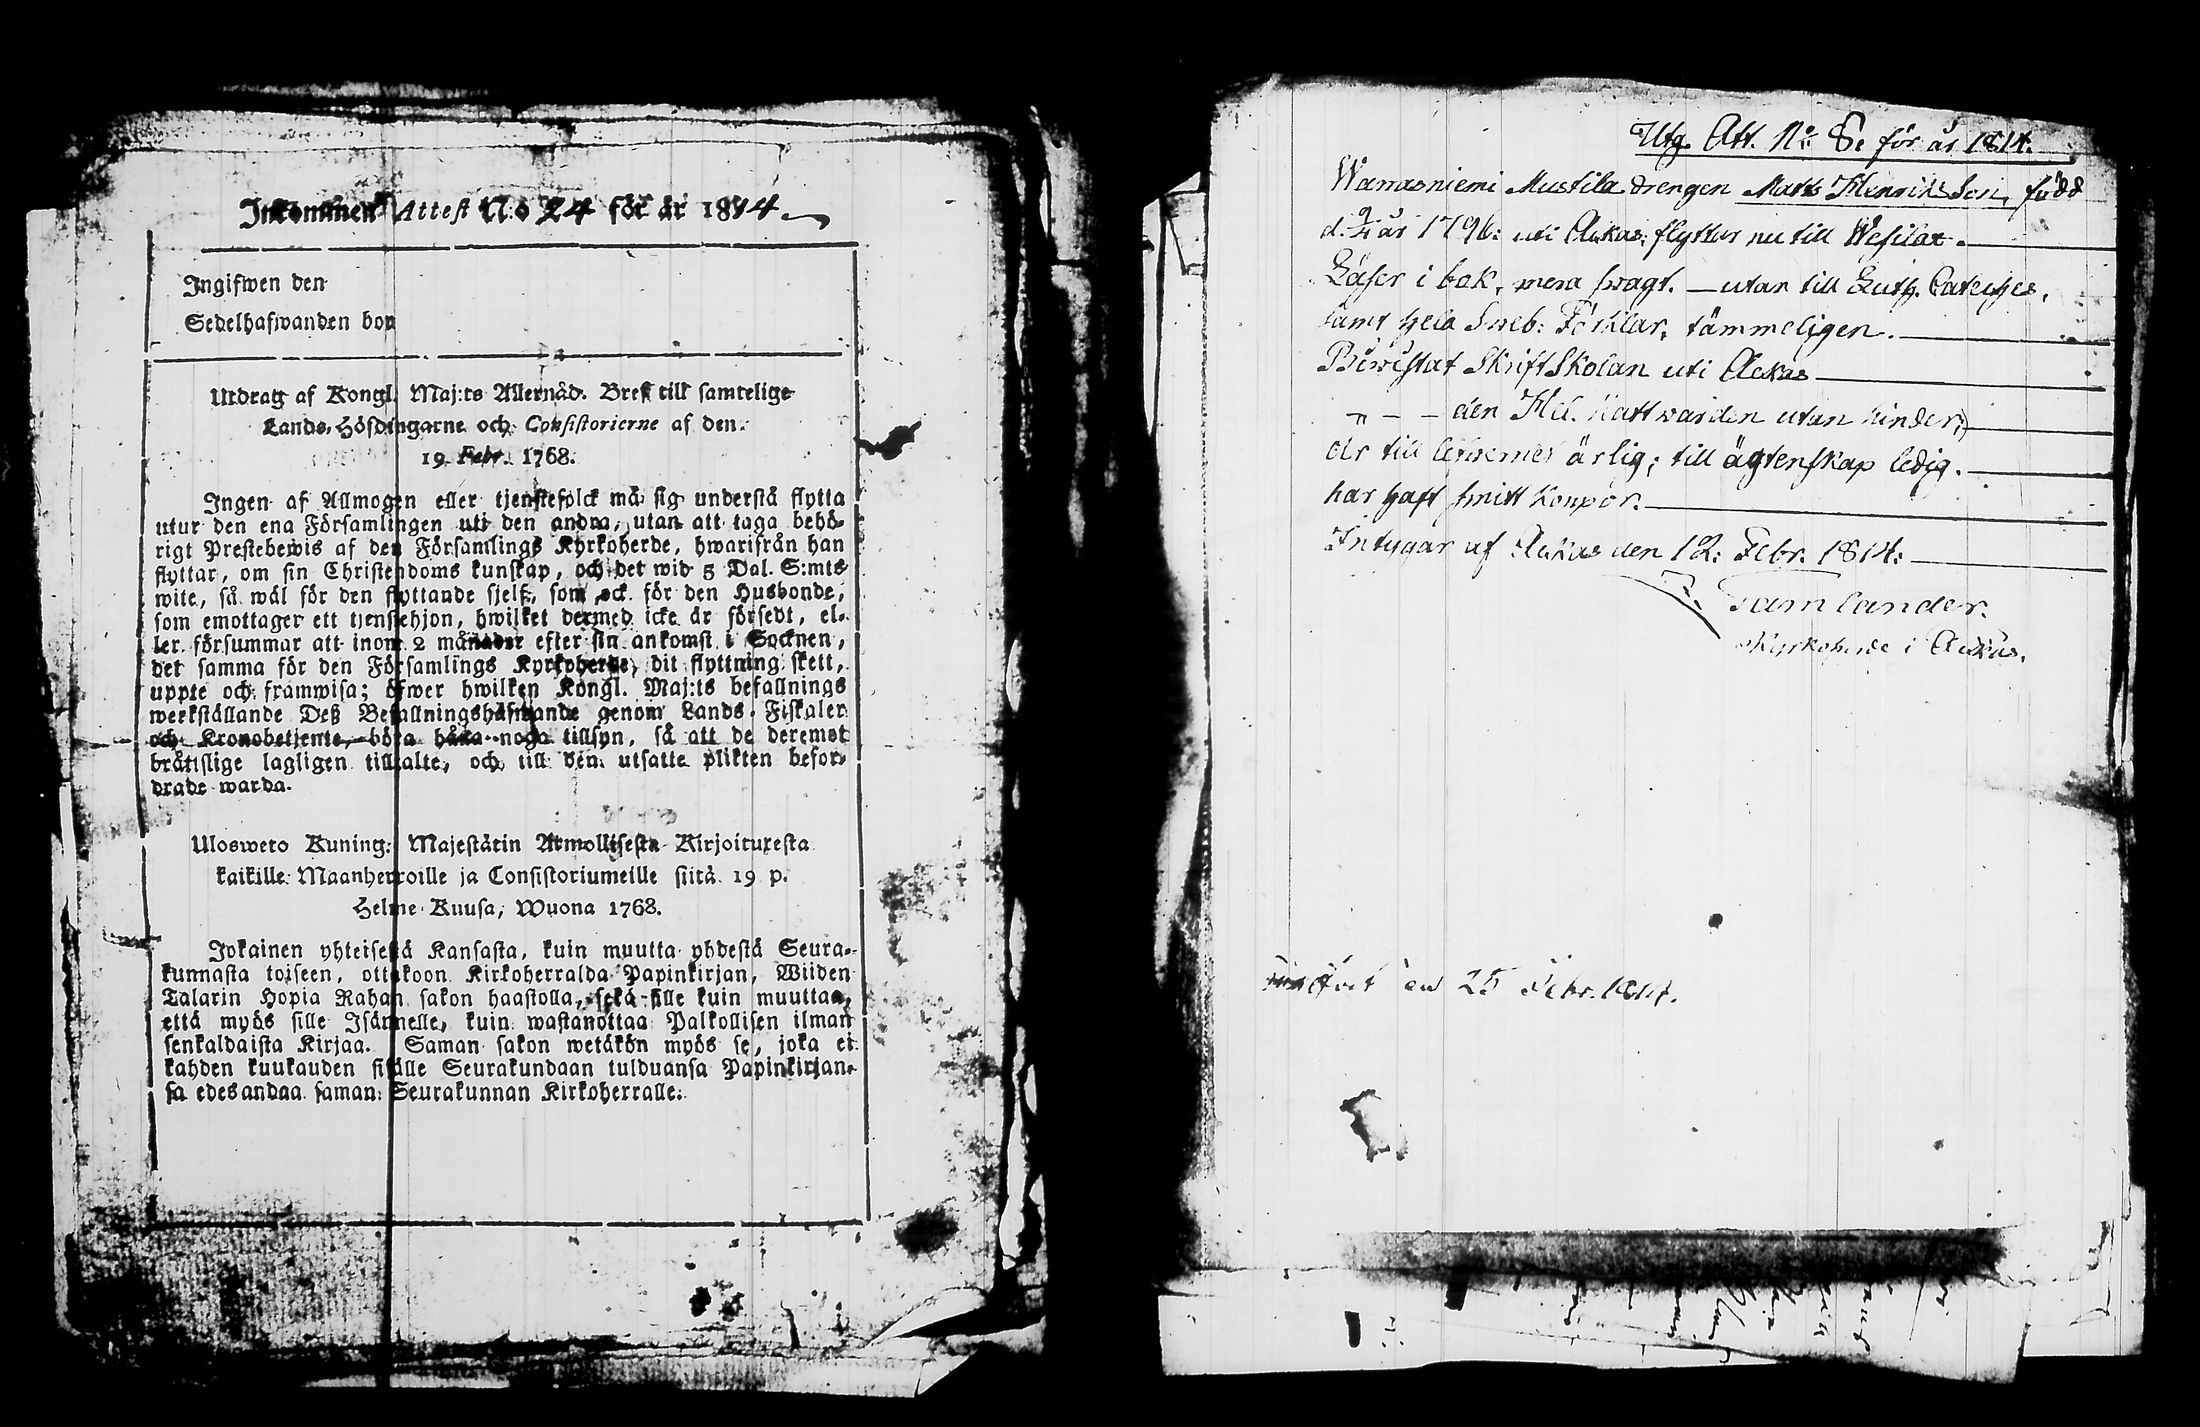 Inkommen Attest N:o 24 för år 1814.
Ingifwen den
Sedelhafwanden bor
Utdrag af Kongl. Maj:ts Allernåd. Bref till samtelige
Lands-Höfdingarne och Consistorierne af den
19 Febr. 1768.
Ingen af Allmogen eller tjenstefolck må sig understå flytta
utur den ena Församlingen uti den andra, utan att taga behö-
rigt Prestebewis af den Församlings Kyrkoherde, hwarifrån han
flyttar, om sin Christendoms kunskap, och det wid 5 Dal. S:mts
wite, så wäl för den flyttande sjelf, som ock för den Husbonde,
som emottager ett tjenstehjon, hwilket dermed icke är försedt, el-
ler försummar att inom 2 månader efter sin ankomst i Socknen,
det samma för den Församlings Kyrkoherde, dit flyttning skett,
uppte och framwisa; öfwer hwilken Kongl. Maj:ts befallnings
werkställande Deß Befallningshafwande genom Lands-Fiskaler
och Kronobetjente, böra hålla noga tillsyn, så att de deremot
bråttslige lagligen tilltalte, och till den utsatte plikten befor-
drade warda.
Ulosweto Kuning. Majestätin Armollisesta Kirjoituxesta
kaikille Maanherroille ja Consistoriumeille siitä 19 p.
Helme-Kuusa, Wuona 1768.
Jokainen yhteisestä Kansasta, kuin muutta yhdestä Seura-
kunnasta toiseen, ottakoon Kirkoherralda Papinkirjan, Wiiden
Talarin Hopia Rahan sakon haastolla, sekä sille kuin muuttaa,
että myös sille Isännelle, kuin wastanottaa Palkollisen ilman
senkaldaista Kirjaa. Saman sakon wetäkön myös se, joka ei
kahden kuukauden sisälle Seurakundaan tulduansa Papinkirjan-
sa edesandaa saman Seurakunnan Kirkoherralle.
Utg. Att. N:o 8 för år 1814.
Wanasniemi Mustila drengen Matts Henriksson, född
d. 9/4 år 1796: uti Ackas: flyttar nu till Wesilax.
Läser i bok, mera swagt. — utan till Luth. Cateches,
samt hela Sweb: Förklar. tämmeligen.
Biwistat Skriftskolan uti Ackas
„ — — den H. Nattwarden utan hinder;
Är till lefwernet ärlig; till ägtenskap ledig.
har haft smitt koppor.
Intygar af Ackas den 12: Febr. 1814:
Tamlander.
Kyrkoherde i Ackas.
den 25 Febr. 1814.